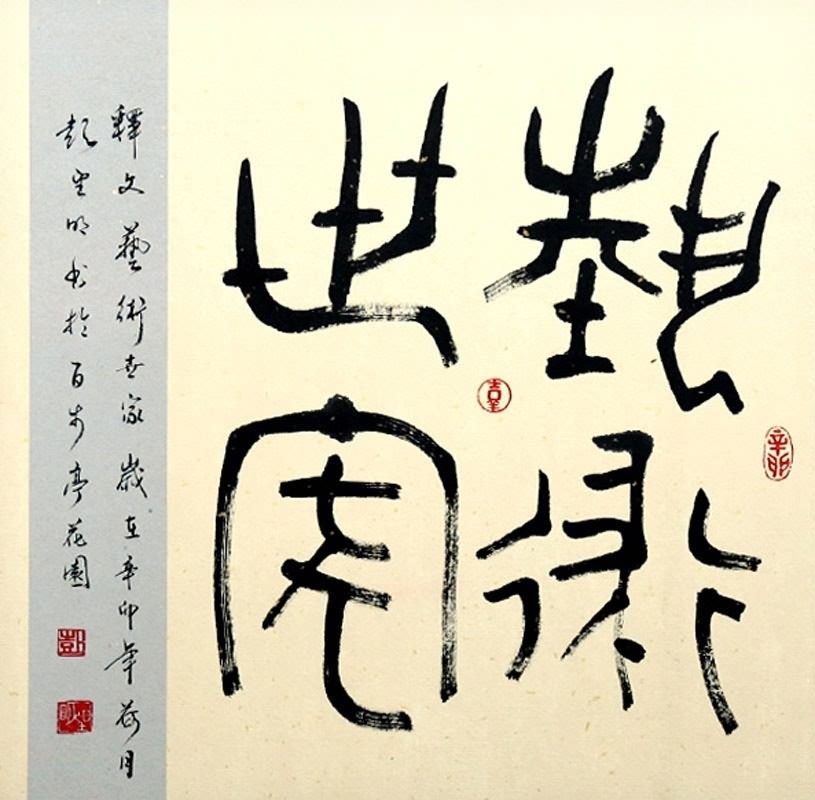 藝術
世家
辛卯
釋文藝術世家歲在辛卯年荷月
彭明书於百步亭花園
彭